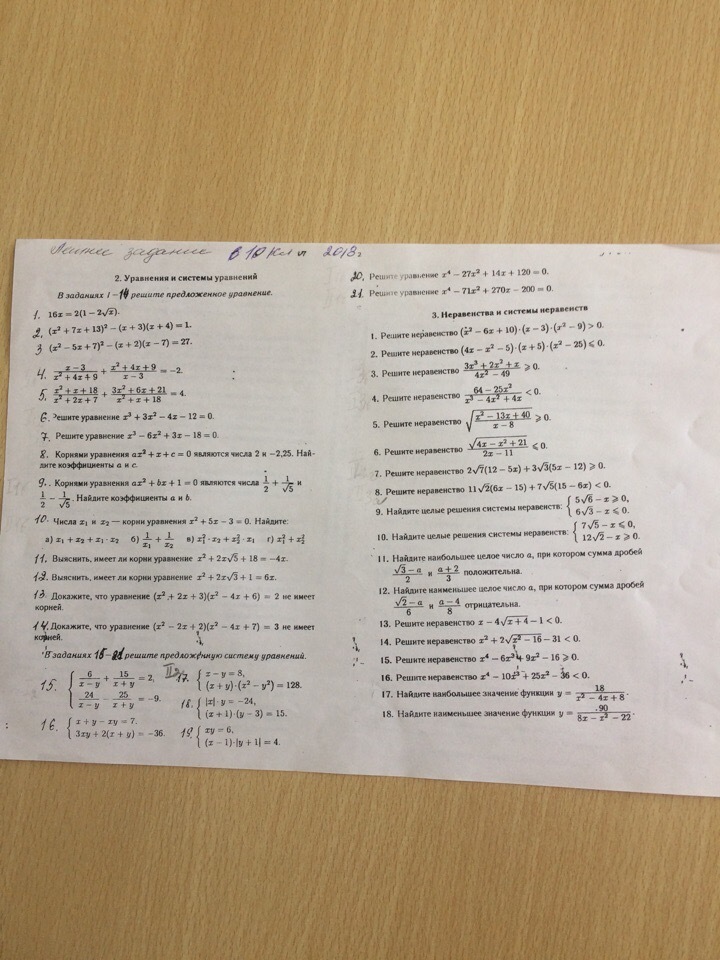 Летнее задание в 10 кл 2013г
2. Уравнения и системы уравнений
В заданиях 1–14 решите предложенное уравнение.
1. 16x = 2(1 − 2√x).
2. (x² + 7x + 13)² − (x + 3)(x + 4) = 1.
3 (x² − 5x + 7)² − (x + 2)(x − 7) = 27.
4. (x − 3)/(x² + 4x + 9) + (x² + 4x + 9)/(x − 3) = −2.
5. (x² + x + 18)/(x² + 2x + 7) + (3x² + 6x + 21)/(x² + x + 18) = 4.
6. Решите уравнение x³ + 3x² − 4x − 12 = 0.
7. Решите уравнение x³ − 6x² + 3x − 18 = 0.
8. Корнями уравнения ax² + x + c = 0 являются числа 2 и −2,25. Най-
дите коэффициенты a и c.
9. Корнями уравнения ax² + bx + 1 = 0 являются числа 1/2 + 1/√5 и
1/2 − 1/√5. Найдите коэффициенты a и b.
10. Числа x₁ и x₂ — корни уравнения x² + 5x − 3 = 0. Найдите:
а) x₁ + x₂ + x₁ · x₂ б) 1/x₁ + 1/x₂ в) x₁² · x₂ + x₂² · x₁ г) x₁² + x₂²
11. Выяснить, имеет ли корни уравнение x² + 2x√5 + 18 = −4x.
12. Выяснить, имеет ли корни уравнение x² + 2x√3 + 1 = 6x.
13. Докажите, что уравнение (x² + 2x + 3)(x² − 4x + 6) = 2 не имеет
корней.
14. Докажите, что уравнение (x² − 2x + 2)(x² − 4x + 7) = 3 не имеет
корней.
В заданиях 15–21 решите предложенную систему уравнений.
15. { 6/(x − y) + 15/(x + y) = 2,
24/(x − y) − 25/(x + y) = −9.
16. { x + y − xy = 7,
3xy + 2(x + y) = −36.
17. { x − y = 8,
(x + y) · (x² − y²) = 128.
18. { |x| · y = −24,
(x + 1) · (y − 3) = 15.
19. { xy = 6,
(x − 1) · |y + 1| = 4.
20. Решите уравнение x⁴ − 27x² + 14x + 120 = 0.
21. Решите уравнение x⁴ − 71x² + 270x − 200 = 0.
3. Неравенства и системы неравенств
1. Решите неравенство (x² − 6x + 10) · (x − 3) · (x² − 9) > 0.
2. Решите неравенство (4x − x² − 5) · (x + 5) · (x² − 25) ⩽ 0.
3. Решите неравенство (3x³ + 2x² + x)/(4x² − 49) ⩾ 0.
4. Решите неравенство (64 − 25x²)/(x³ − 4x² + 4x) < 0.
5. Решите неравенство √((x² − 13x + 40)/(x − 8)) ⩾ 0.
6. Решите неравенство √(4x − x² + 21)/(2x − 11) ⩽ 0.
7. Решите неравенство 2√7(12 − 5x) + 3√3(5x − 12) ⩾ 0.
8. Решите неравенство 11√2(6x − 15) + 7√5(15 − 6x) < 0.
9. Найдите целые решения системы неравенств: { 5√6 − x ⩾ 0,
6√3 − x ⩽ 0.
10. Найдите целые решения системы неравенств: { 7√5 − x ⩽ 0,
12√2 − x ⩾ 0.
11. Найдите наибольшее целое число a, при котором сумма дробей
(√3 − a)/2 и (a + 2)/3 положительна.
12. Найдите наименьшее целое число a, при котором сумма дробей
(√2 − a)/6 и (a − 4)/8 отрицательна.
13. Решите неравенство x − 4√(x + 4) − 1 < 0.
14. Решите неравенство x² + 2√(x² − 16) − 31 < 0.
15. Решите неравенство x⁴ − 6x³ + 9x² − 16 ⩾ 0.
16. Решите неравенство x⁴ − 10x³ + 25x² − 36 < 0.
17. Найдите наибольшее значение функции y = 18/(x² − 4x + 8).
18. Найдите наименьшее значение функции y = 90/(8x − x² − 22).